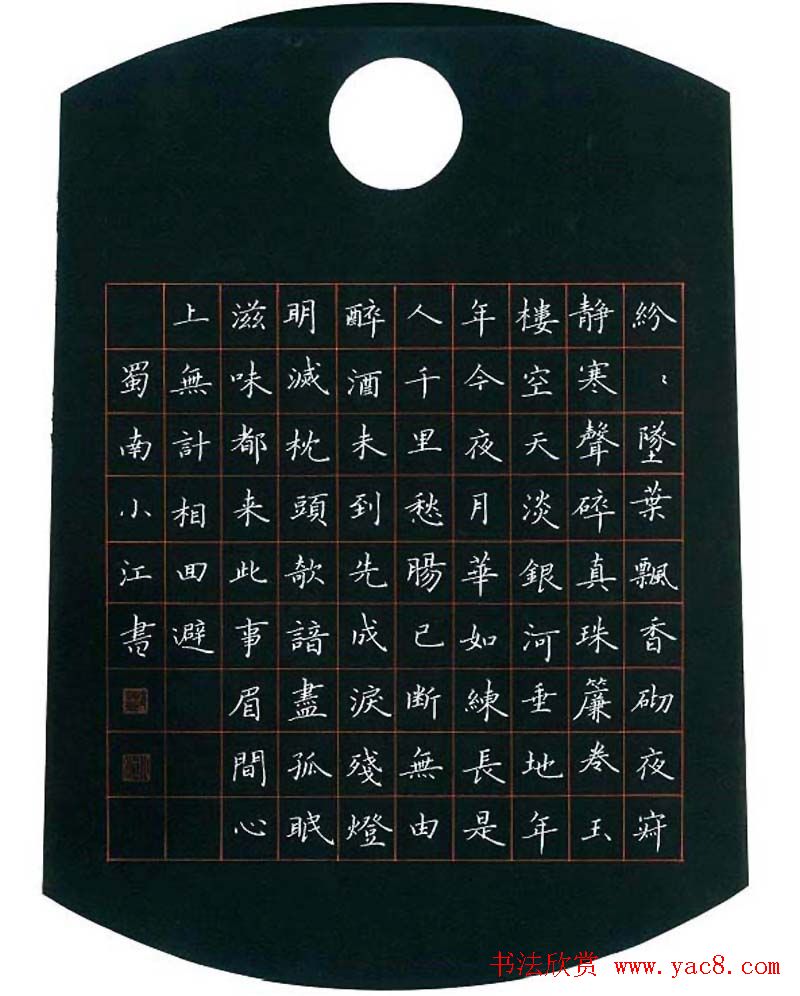 紛〻墜葉飄香砌夜寂
静寒聲碎真珠簾卷玉
樓空天淡銀河垂地年
年今夜月華如練長是
人千里愁腸已斷無由
醉酒未到先成淚殘燈
明滅枕頭欹諳盡孤眠
滋味都来此事眉間心
上無計相回避
蜀南小江書
书法欣赏 www.yac8.com